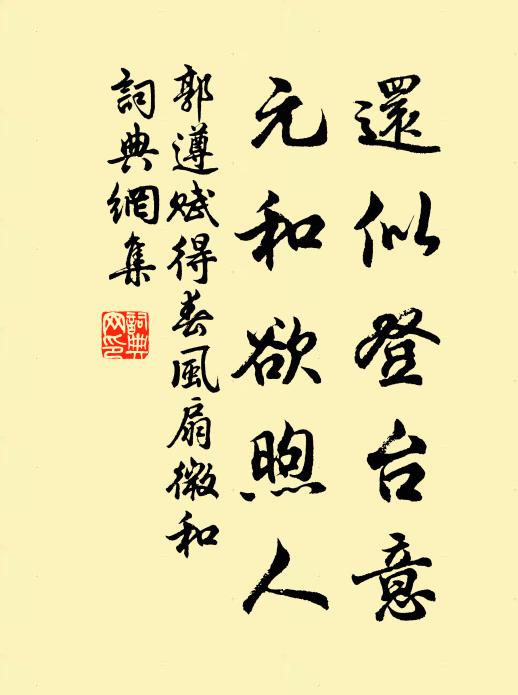 還似登台意
元和欲煦人
郭遵賦得春風扇微和
詞典網集
詞典網印